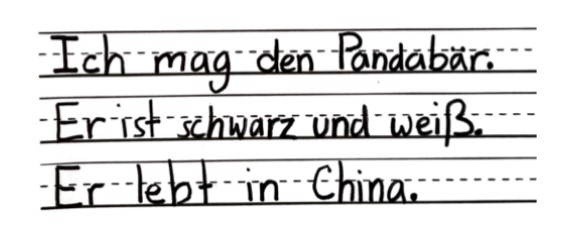 Ich mag den Pandabär.
Er ist schwarz und weiß.
Er lebt in China.